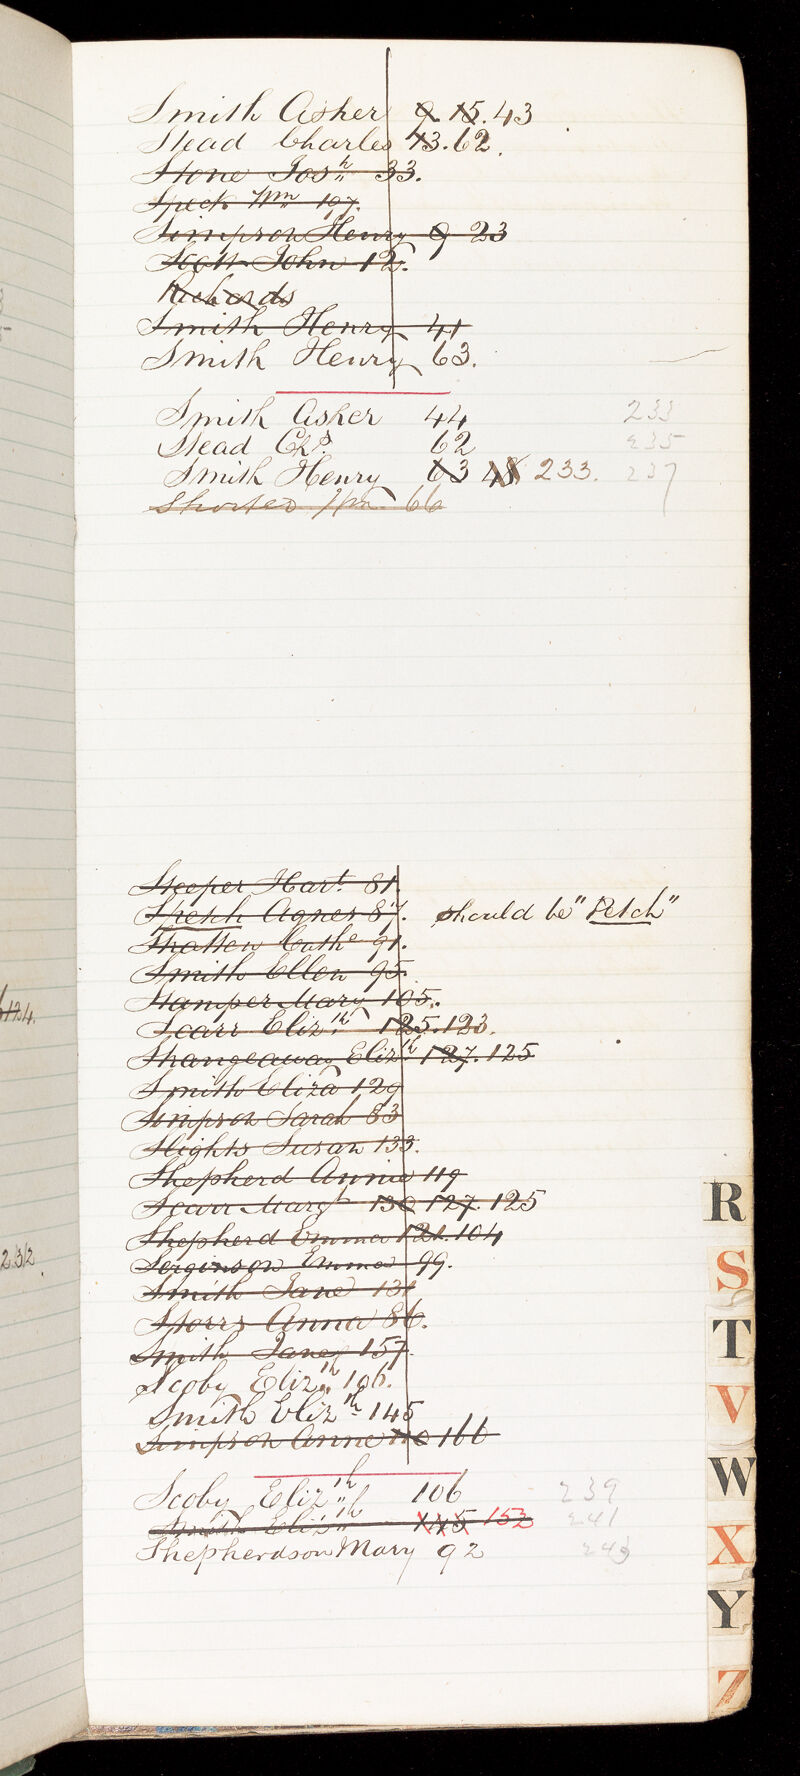 Smith Asher 9. 15. 43
Stead Charles 43. 62.
Stone Josh 33.
Speck Wm 197.
Simpson Henry 9 23
Scott John 12.
Richards
Smith Henry 41
Smith Henry 63.
Smith Asher 44 233
Stead Chs 62 235
Smith Henry 63 48 233. 237
Shorted Wm 66
Steeper Hart. 81.
Spetch Agnes 87. should be "Petch"
Stratten Cathe 91.
Smith Ellen 95.
Stamper Mary 105.
Scarr Elizth 125. 123.
Elizth 127. 125
Smith Eliza 129
Simpson Sarah 83
Slights Susan 133.
Shepherd Annie 119
Scarr Margt 130 127. 125
Shepherd Emma 121. 104
Serginson Emma 99.
Smith Jane 131
Storry Anna 86.
Smith Jane 157.
Scoby Elizth 106.
Smith Elizth 145
Simpson Anne 110 166
Scoby Elizth 106 239
Smith Elizth 145 153 241
Shepherdson Mary 92 243
124.
232
R
S
T
V
W
X
Y
Z